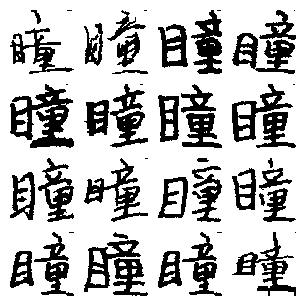 瞳瞳瞳瞳
瞳瞳瞳瞳
瞳瞳瞳瞳
瞳瞳瞳瞳